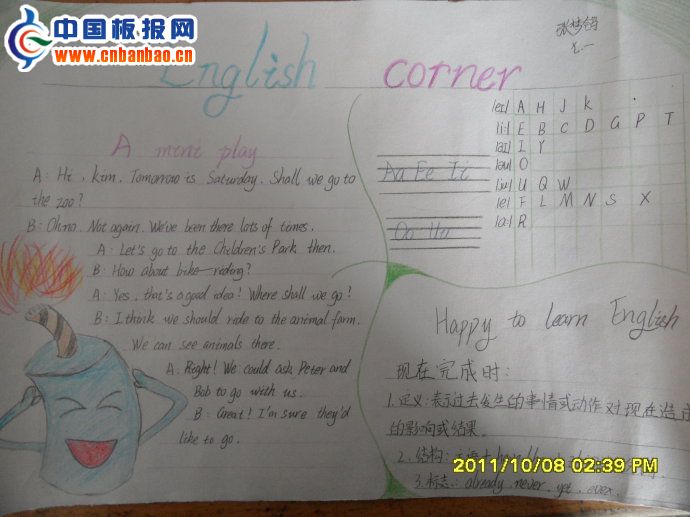 中国板报网
www.cnbanbao.cn
English corner
A mini play
A: Hi, kim. Tomorrow is Saturday. Shall we go to
the zoo?
B: Oh no. Not again. We've been there lots of times.
A: Let's go to the Children's Park then.
B: How about bike-riding?
A: Yes, that's a good idea! Where shall we go?
B: I think we should ride to the animal farm.
We can see animals there.
A: Right! We could ask Peter and
Bob to go with us.
B: Great! I'm sure they'd
like to go.
七.一
/ei/ A H J k
/i:/ E B C D G P T
/ai/ I Y
/əu/ O
/ju:/ U Q W
/e/ F L M N S X
/a:/ R
Aa Ee Ii
Oo Uu
Happy to learn English
现在完成时:
1.定义:表示过去发生的事情或动作对现在造
的影响或结果。
2.结构:
3.标志:already.never.yet.ever.
2011/10/08 02:39 PM